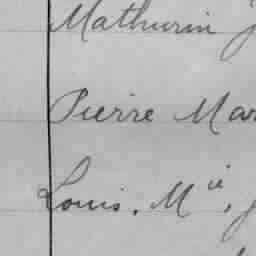 Mathurin
Pierre Mar
Louis. Mie,